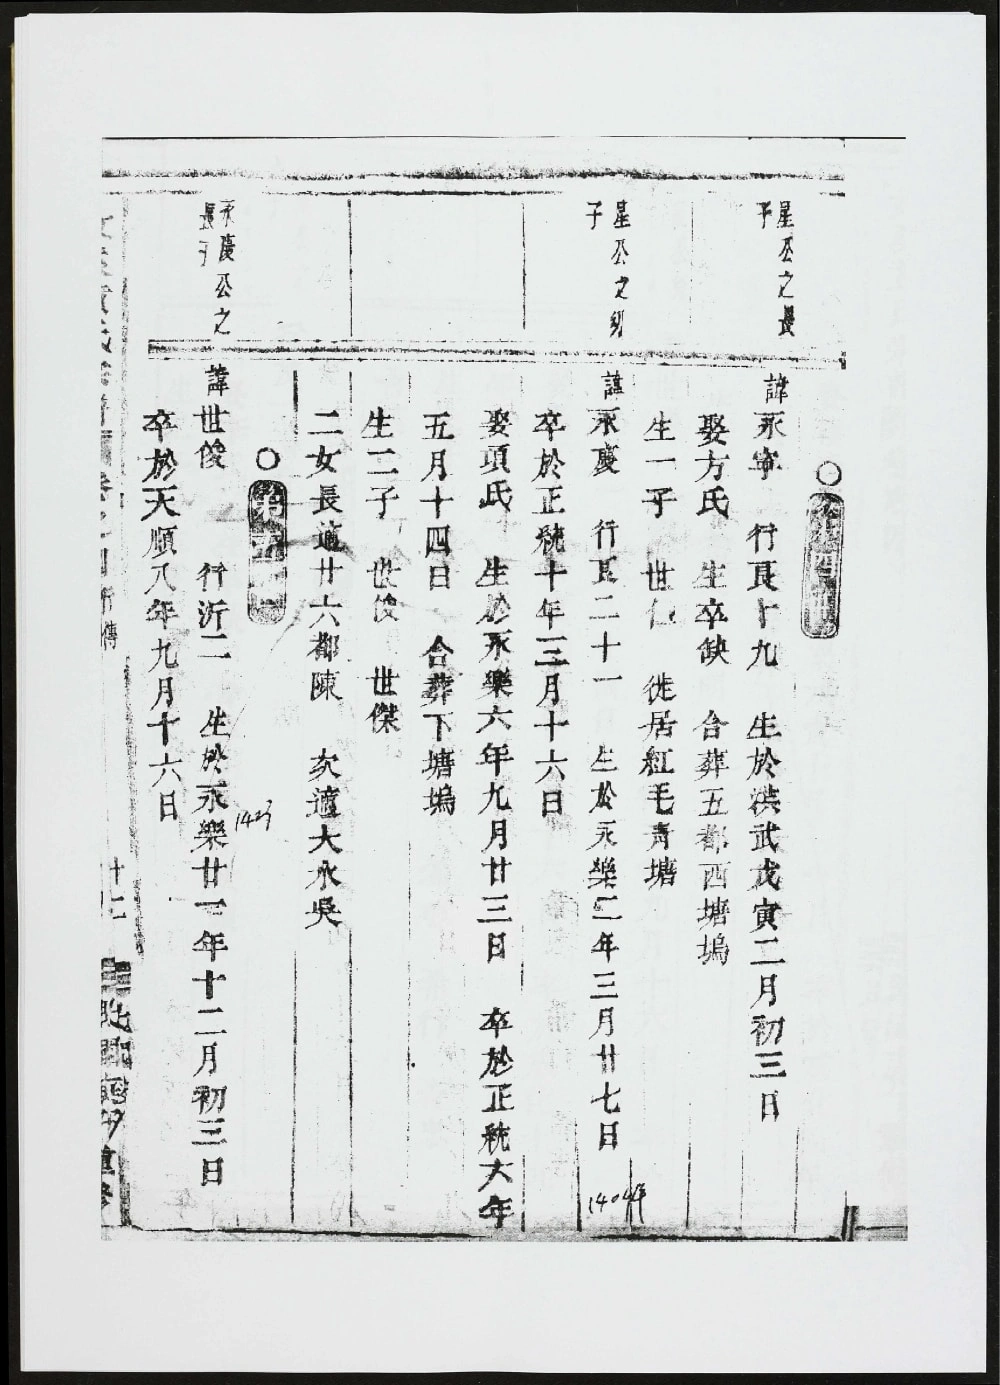 星公之長
子
諱永寧 行艮十九 生於洪武戊寅二月初三日
娶方氏 生卒缺 合葬五都西塘塢
生一子 世仁 徙居紅毛青塘
星公之幼
子
諱永慶 行艮二十一 生於永樂二年三月廿七日
1404年
卒於正統十年三月十六日
娶項氏 生於永樂六年九月廿三日 卒於正統六年
五月十四日 合葬下塘塢
生二子 世俊 世傑
二女長適廿六都陳 次適大水吳
第五
永慶公之
長子
諱世俊 行沂二 生於永樂廿一年十二月初三日
1423
卒於天順八年九月十六日
重修